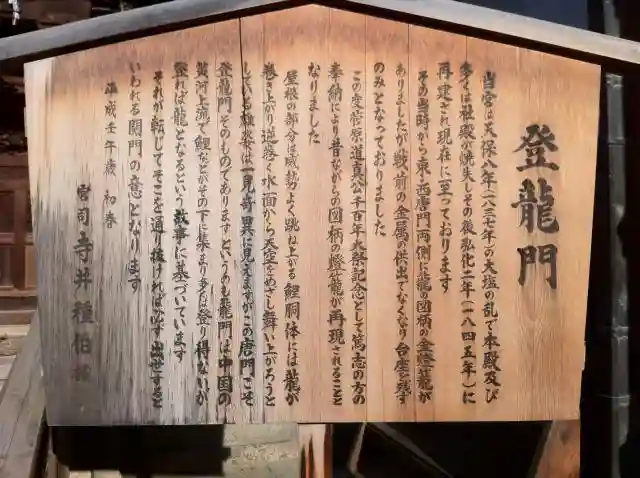 登龍門
当宮は天保八年（一八三七年）の大塩の乱で本殿及び
多くは社殿が焼失しその後弘化二年（一八四五年）に
再建され現在に至っております
その当時から東、西唐門両側に龍の図柄の金燈籠が
ありましたが戦前の金属の供出でなくなり台座を残す
のみとなっておりました
この度菅原道真公千百年大祭記念として篤志の方の
奉納により昔ながらの図柄の燈籠が再現されることと
なりました
屋根の部分は威勢よく跳ね上がる鯉胴体には龍が
巻き上がり逆巻く水面から天空をめざし舞い上がろうと
している様は一見奇異に見えますがこの唐門こそ
登龍門そのものでありますというのも龍門は中国の
黄河上流で鯉などがその下に集まり多くは登り得ないが
登れば龍となるという故事に基づいています
それが転じてそこを通り抜ければ必ず出世すると
いわれる関門の意となります
平成壬午歳 初春
宮司 寺井種伯